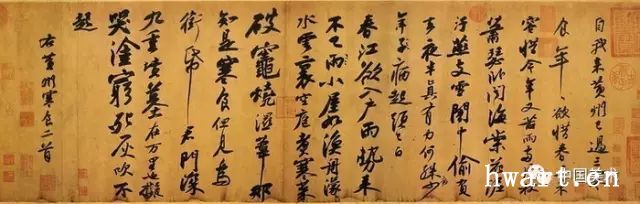 自我来黄州已過三寒
食年年欲惜春春去不
容惜今年又苦雨兩月秋
蕭瑟卧聞海棠花泥
汙燕支雪闇中偷負
去夜半真有力何殊少
年子病起頭已白
春江欲入户雨勢来
不已雨小屋如漁舟濛濛
水雲裏空庖煮寒菜
破竈燒濕葦那
知是寒食但見烏
銜帋君門深
九重墳墓在万里也擬
哭塗窮死灰吹不
起
右黄州寒食二首
中国美术
hwart.cn